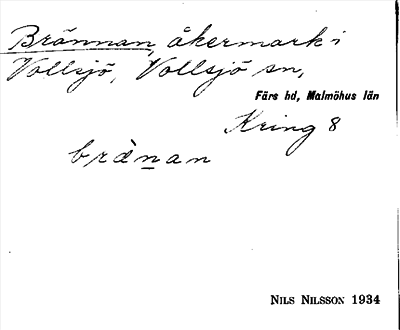 Brännan, åkermark i
Vollsjö, Vollsjö sn,
Färs hd, Malmöhus län
Kring 8
brànan
NILS NILSSON 1934